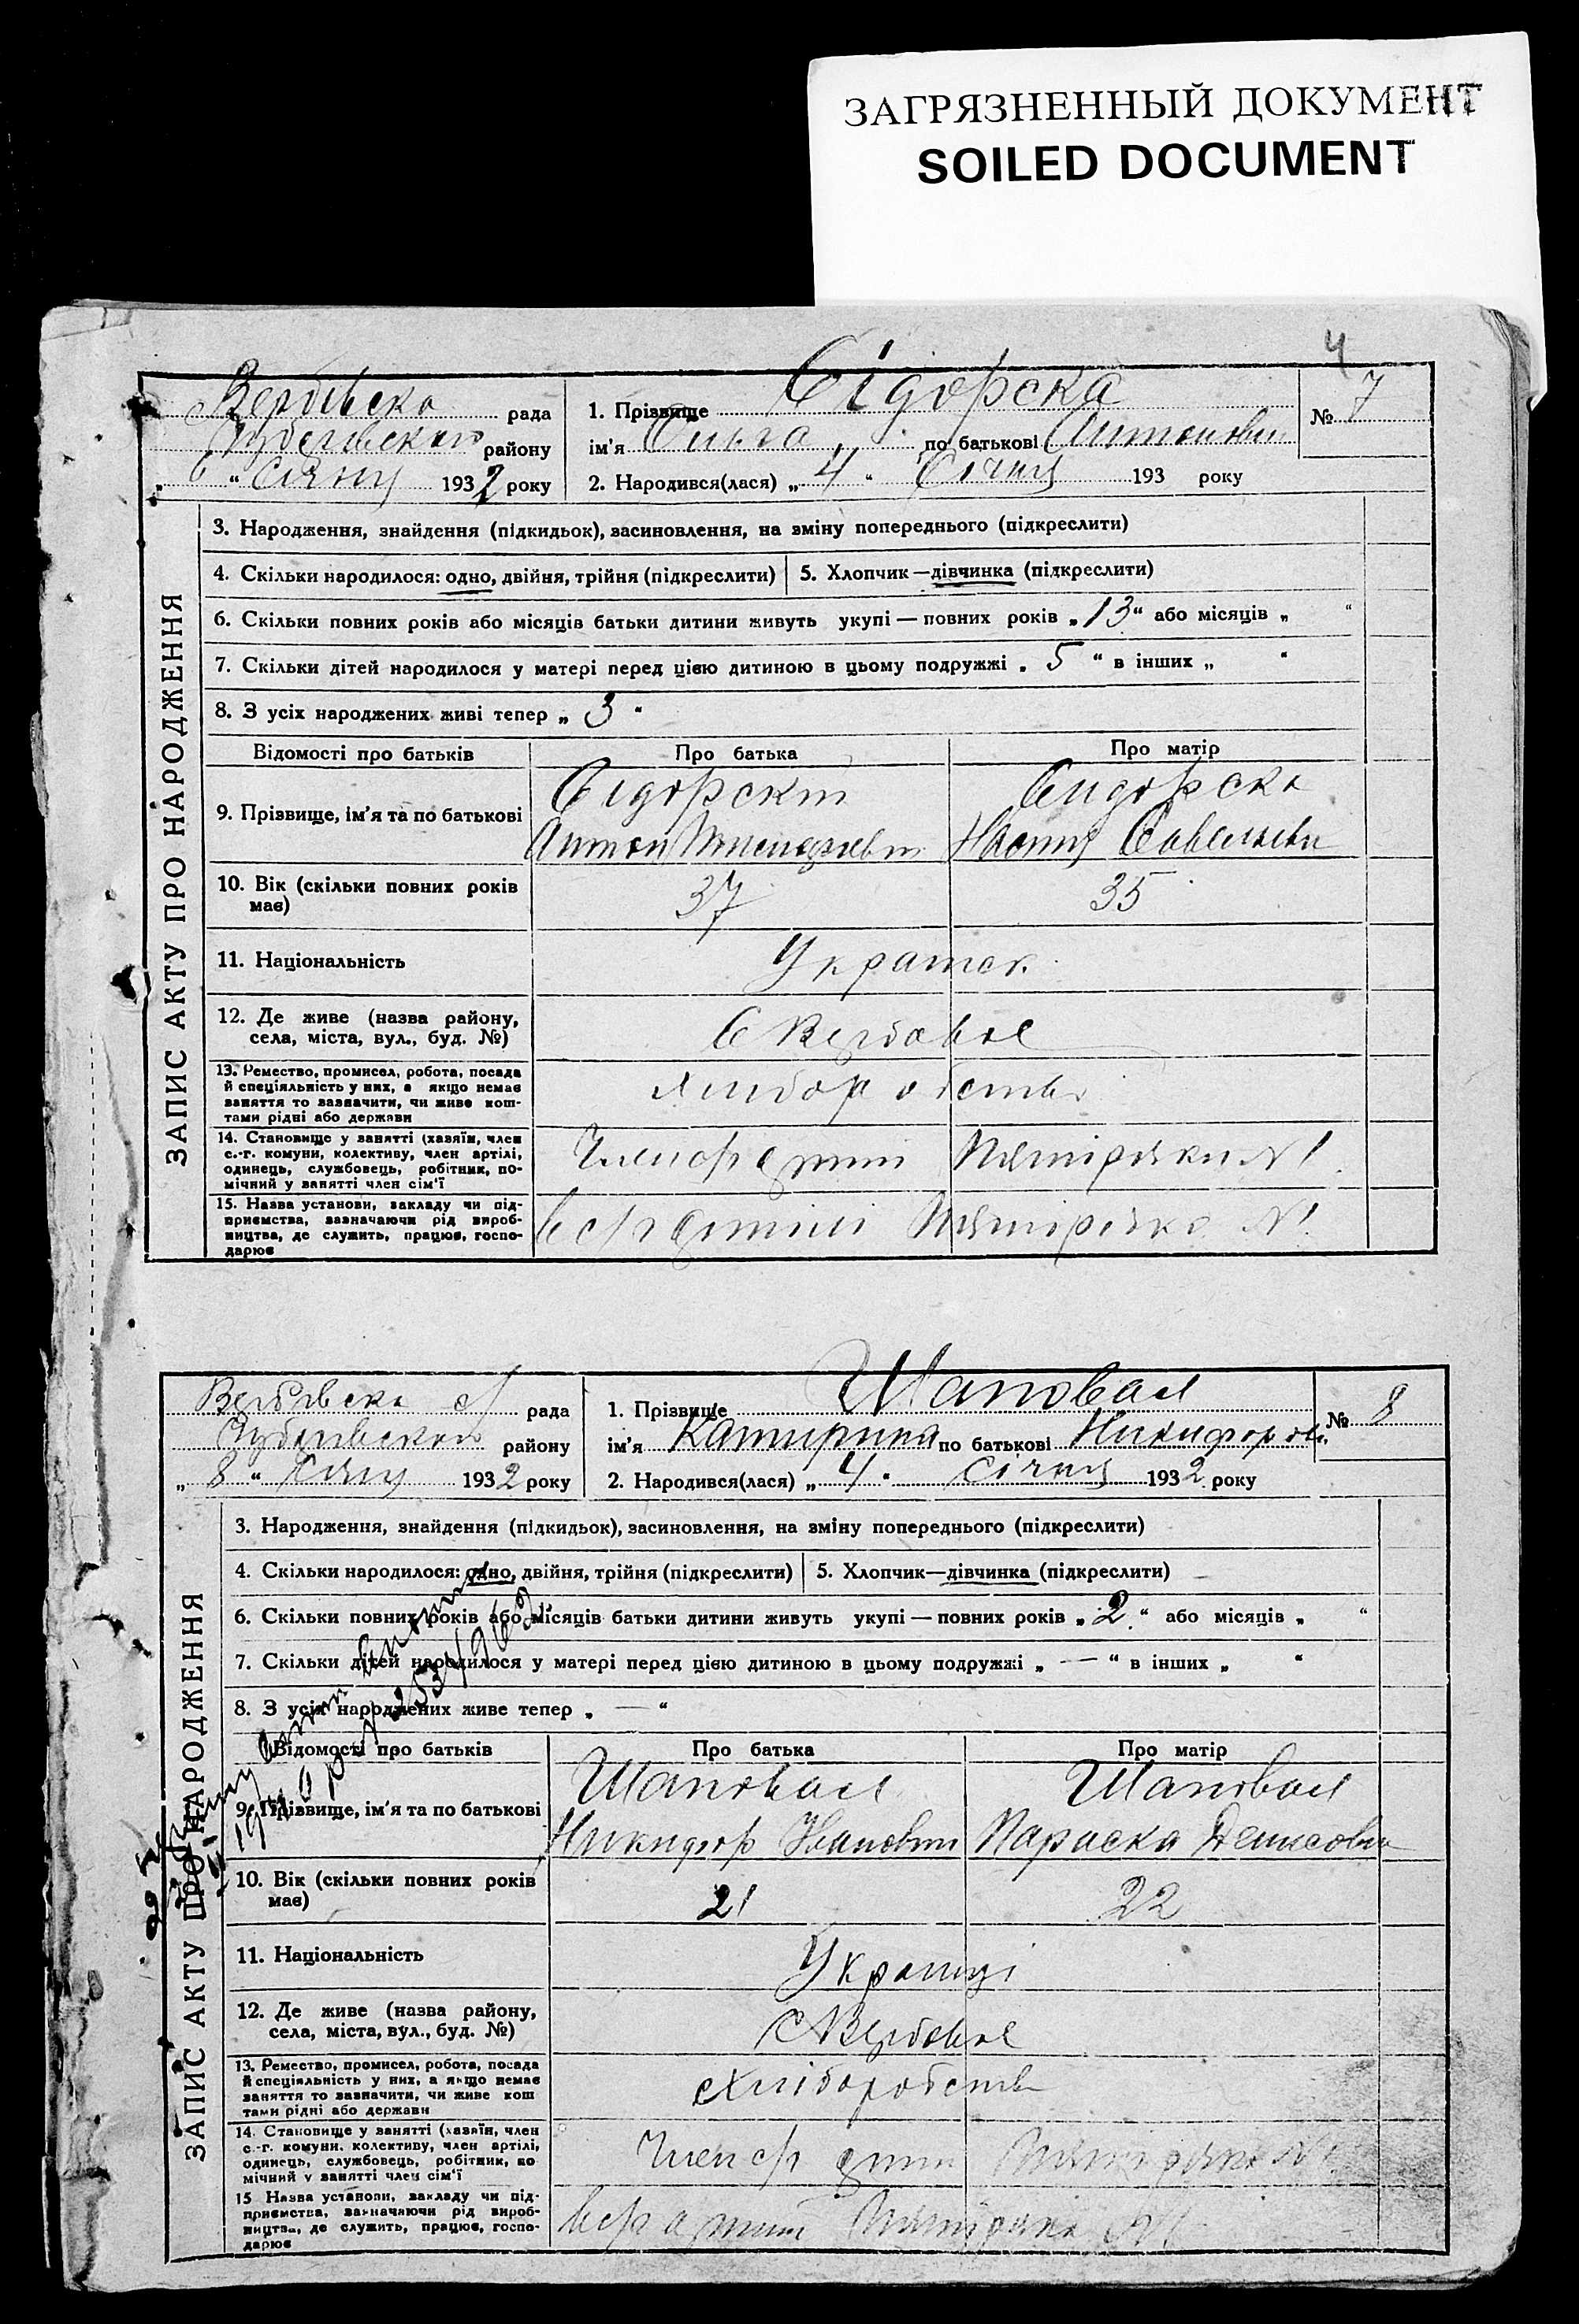 ЗАГРЯЗНЕННЫЙ ДОКУМЕНТ
SOILED DOCUMENT
4
Вербівска рада
району
6 " Січня 1932 року
1. Прізвище Сідорска
ім'я Ольга по батькові Антоновн
2. Народився(лася) „ 4 " Січня 193 року
№ 7
ЗАПИС АКТУ ПРО НАРОДЖЕННЯ
3. Народження, знайдення (підкидьок), засиновлення, на зміну попереднього (підкреслити)
4. Скільки народилося: одно, двійня, трійня (підкреслити) 5. Хлопчик—дівчинка (підкреслити)
6. Скільки повних років або місяців батьки дитини живуть укупі — повних років „ 13 " або місяців „ "
7. Скільки дітей народилося у матері перед цією дитиною в цьому подружжі „ 5 " в інших „ "
8. З усіх народжених живі тепер „ 3 "
Відомості про батьків Про батька Про матір
9. Прізвище, ім'я та по батькові
Сідорский Сидорска
Антон Настя Савельевн
10. Вік (скільки повних років
має)
37 35
11. Національність
Україиск
12. Де живе (назва району,
села, міста, вул., буд. №)
С Вербовое
13. Ремество, промисел, робота, посада
й спеціяльність у них, а якщо немає
заняття то зазначити, чи живе кош-
тами рідні або держави
хлиборобства
14. Становище у занятті (хазяїн, член
с.-г. комуни, колективу, член артілі,
одинець, службовець, робітник, по-
мічний у занятті член сім'ї
Член с/г артіи Пятирічки №1
15. Назва установи, закладу чи під-
приємства, зазначаючи рід вироб-
ництва, де служить, працює, госпо-
дарює
в с/г артілі Пятирічка №1
Вербівска рада
району
„ 8 " Січня 1932 року
1. Прізвище Шаповал
ім'я Катирина по батькові Никифоров
2. Народився(лася) „ 4 " Січня 1932 року
№ 8
ЗАПИС АКТУ ПРО НАРОДЖЕННЯ
3. Народження, знайдення (підкидьок), засиновлення, на зміну попереднього (підкреслити)
4. Скільки народилося: одно, двійня, трійня (підкреслити) 5. Хлопчик—дівчинка (підкреслити)
6. Скільки повних років або місяців батьки дитини живуть укупі — повних років „ 2 " або місяців „ "
7. Скільки дітей народилося у матері перед цією дитиною в цьому подружжі „ — " в інших „ "
8. З усіх народжених живе тепер „ — "
Відомості про батьків Про батька Про матір
9. Прізвище, ім'я та по батькові
Шаповал Шаповал
Никифор Іванович Параска Денисовн
10. Вік (скільки повних років
має)
21 22
11. Національність
Українці
12. Де живе (назва району,
села, міста, вул., буд. №)
С Вербовое
13. Ремество, промисел, робота, посада
й спеціяльність у них, а якщо немає
заняття то зазначити, чи живе кош
тами рідні або держави
Хліборобств
14. Становище у занятті (хазяїн, член
с.-г. комуни, колективу, член артілі,
одинець, службовець, робітник, по
мічний у занятті член сім'ї
Член с/г артіи Пятирічка №1
15 Назва установи, закладу чи під-
приємства, зазначаючи рід вироб-
ництва, де служить, працює, госпо-
дарює
в с/г артіи Пятирічка №1